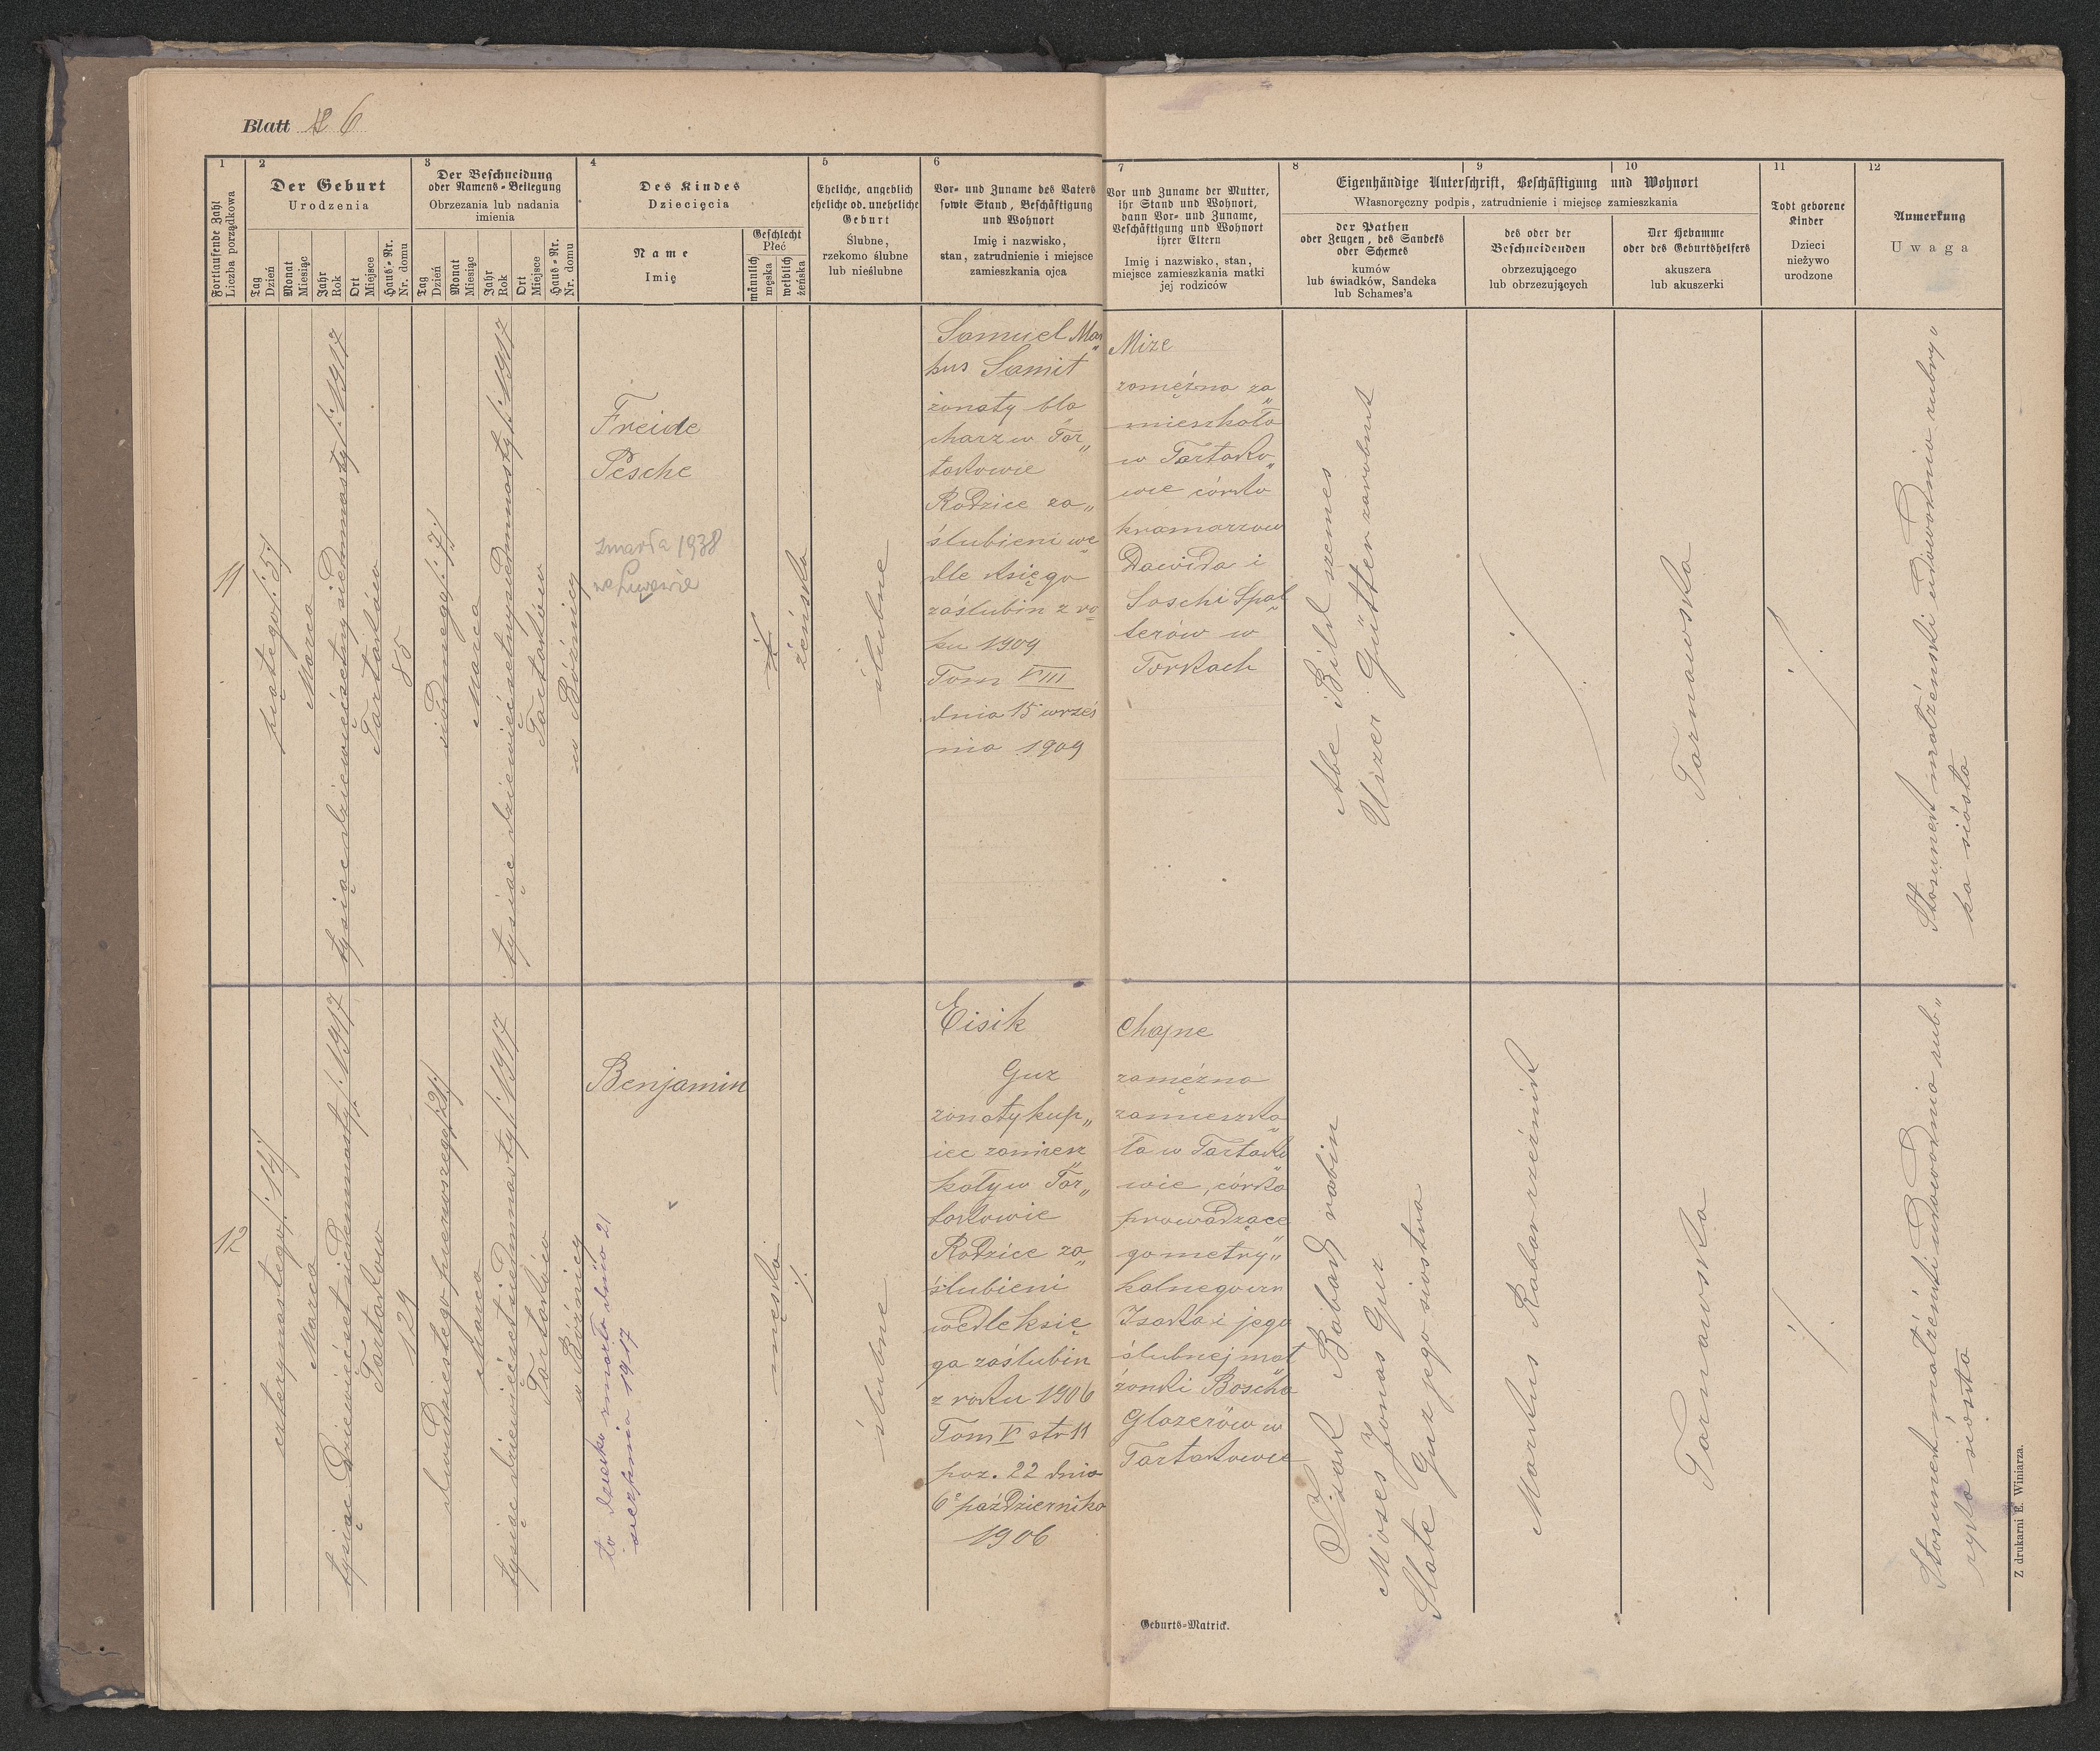 Blatt 6
1
2
3
4
5
6
7
8
9
10
11
12
Fortlaufende Zahl
Liczba porządkowa
Der Geburt
Urodzenia
Tag
Dzień
Monat
Miesiąc
Jahr
Rok
Ort
Miejsce
Haus-Nr.
Nr. domu
Der Beschneidung
oder Namens-Beilegung
Obrzezania lub nadania
imienia
Tag
Dzień
Monat
Miesiąc
Jahr
Rok
Ort
Miejsce
Haus-Nr.
Nr. domu
Des Kindes
Dziecięcia
Name
Imię
Geschlecht
Płeć
männlich
męska
weiblich
żeńska
Eheliche, angeblich
eheliche od. uneheliche
Geburt
Ślubne,
rzekomo ślubne
lub nieślubne
Vor- und Zuname des Vaters
sowie Stand, Beschäftigung
und Wohnort
Imię i nazwisko,
stan, zatrudnienie i miejsce
zamieszkania ojca
Vor und Zuname der Mutter,
ihr Stand und Wohnort,
dann Vor- und Zuname,
Beschäftigung und Wohnort
ihrer Eltern
Imię i nazwisko, stan,
miejsce zamieszkania matki
jej rodziców
Eigenhändige Unterschrift, Beschäftigung und Wohnort
Własnoręczny podpis, zatrudnienie i miejsce zamieszkania
der Pathen
oder Zeugen, des Sandeks
oder Schemes
kumów
lub świadków, Sandeka
lub Schames'a
des oder der
Beschneidenden
obrzezującego
lub obrzezujących
Der Hebamme
oder des Geburtshelfers
akuszera
lub akuszerki
Todt geborene
Kinder
Dzieci
nieżywo
urodzone
Anmerkung
Uwaga
11
piątego /:5:/
Marca
tysiąc dziewięćset siedmnasty /:1917
Tartaków
85
siódmego /:7:/
Marca
tysiąc dziewięćset siedmnasty /:1917
Tartaków
w Bóżnicy
Freide
Pesche
zmarła 1938
we Lwowie
żeńska
ślubne
Samuel Mar
kus Samit
żonaty bla
charz w Tar„
takowie
Rodzice za„
ślubieni we
dle księga
zaślubin z ro
ku 1909
Tom VIII
dnia 15 wrześ
nia 1909
Mize
zamężna za
mieszkała
w Tartako„
wie córka
kramarzów
Dawida i
Soschi Spal
terów w
Torkach
Abe Bild szemes
Uszer Gütter zarobnik
./.
Tarnawska
./.
Stosunek małżeński udowodnia rubry„
ka siósta
12
czternastego /:14:/
Marca
tysiąc dziewięćset siedmnasty /:1917
Tartaków
129
dwudziestego pierwszego /:21:/
Marca
tysiąc dziewięćset siedmnasty /:1917
Tartaków
w Bóżnicy
Benjamin
to dziecko zmarło dnia 21
sierpnia 1917
męska
./.
ślubne
Eisik
Guz
żonaty kup„
iec zamiesz
kały w Tar„
takowie
Rodzice za„
ślubieni
wedle księ
ga zaślubin
z roku 1906
Tom V str 11
poz. 22 dnia
6 października
1906
Chajne
zamężna
zamieszka
ła w Tartako
wie, córka
prowadzące
go metry„
kalnego urz
Izaka i jego
ślubnej mał
żonki Boscha
Glazerów w
Tartakowie
Izak Babad rabin
Moses Jonas Guz
Slate Guz jego siostra
Markus Rabar rzeźnik
Tarnawska
./.
Stosunek małżeński udowodnia rub„
ryka siósta
Geburts-Matrick.
Z drukarni E. Winiarza.